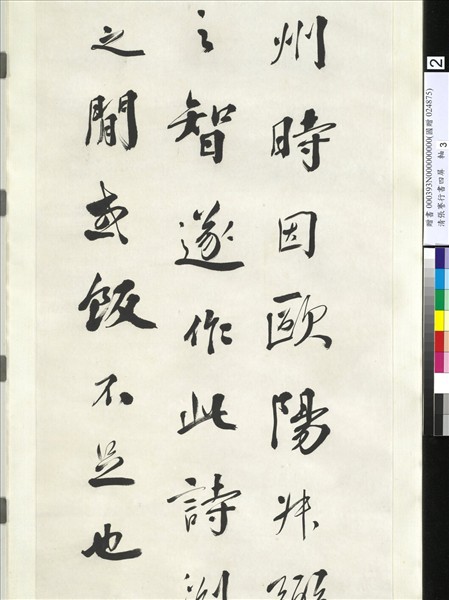 州時因歐陽叔
之智遂作此詩
之間或飯不足也
2
贈書 000393N000000000(國贈 024875)
清張謇行書四屏 軸 3